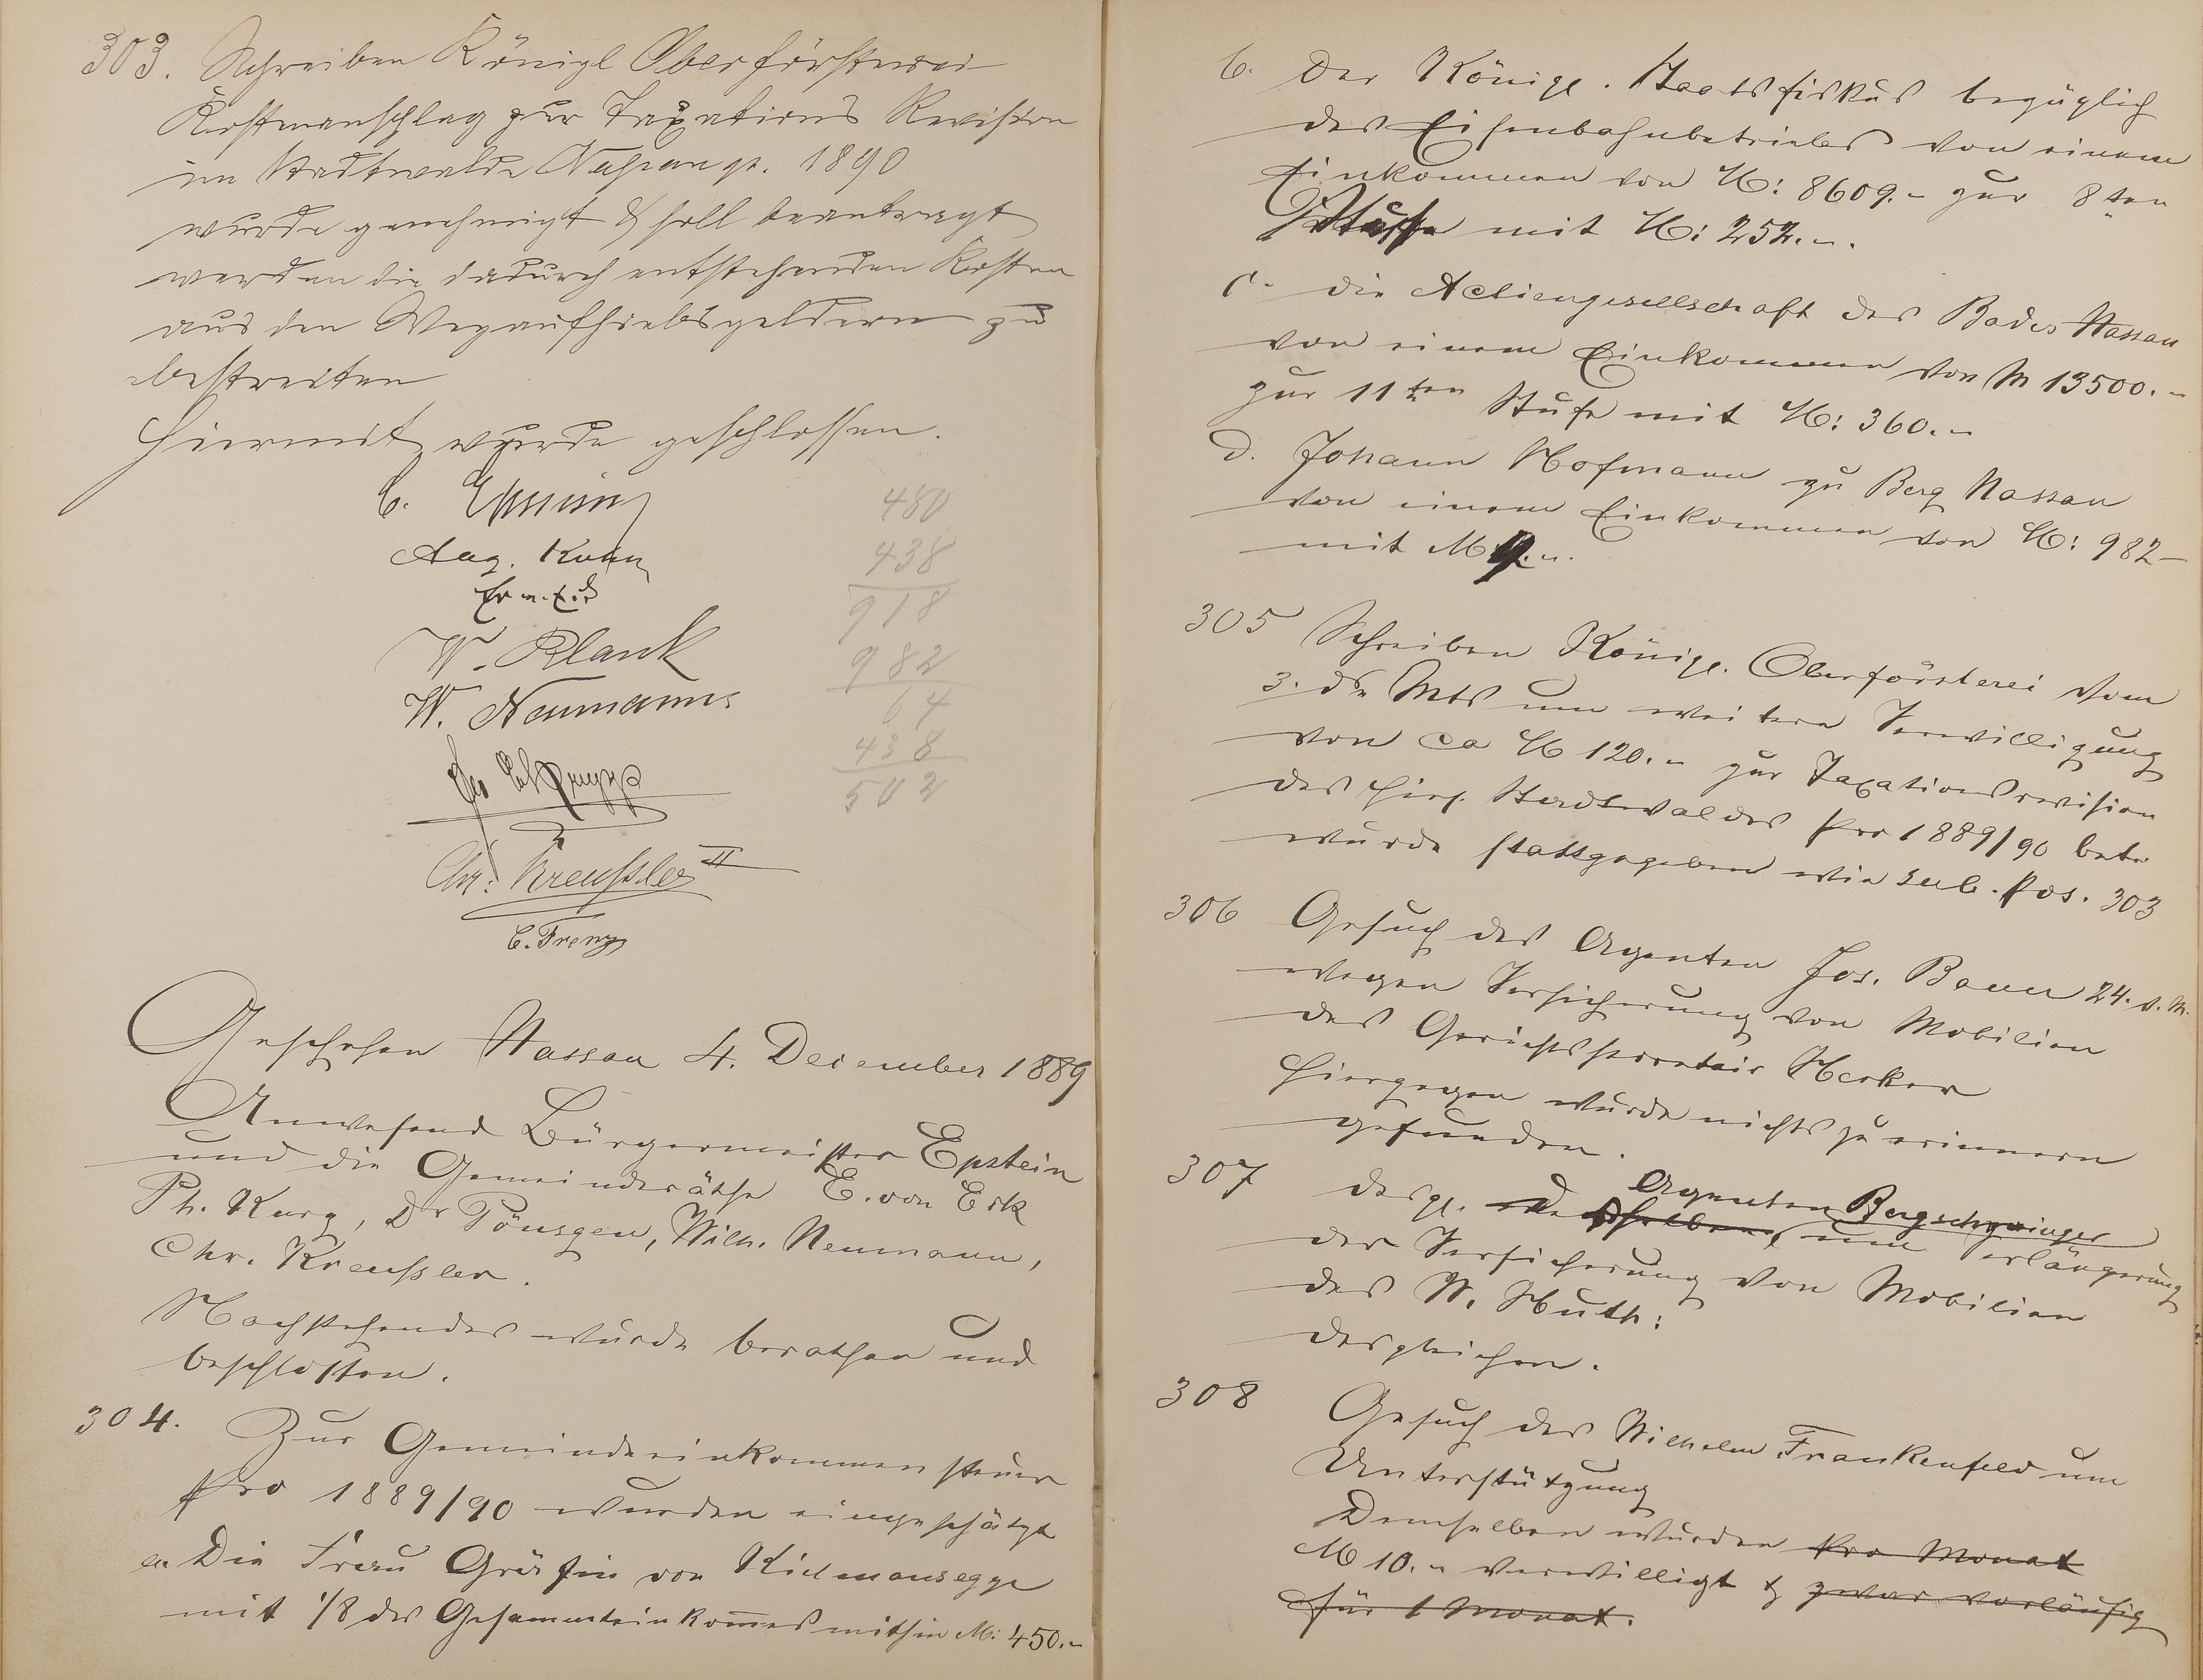 303. Schreiben Königl Oberförsterei
Kostenanschlag zur Taxations Revision
im Stadtwalde Nassau pr. 1890
wurde genehmigt & soll beantragt
werden die dadurch entstehenden Kosten
aus den Wegaufhiebsgeldern zu
bestreiten
Hiermit wurde geschlossen.
480
Aug.
438
918
W. Blank
982
W. Neumann.
64
438
502
Chr: Kreußler II
C. Frenz
Geschehen Nassau 4. December 1889
Anwesend Bürgermeister Epstein
und die Gemeinderäthe E. von Eck
Ph. Kurz, Dr Pönsgen, Wilh. Neumann,
Chr. Kreussler.
Nachstehendes wurde berathen und
beschlossen.
304. Zur Gemeindeeinkommensteuer
pro 1889/90 wurden eingeschätzt
a Die Frau Gräfin von Kielmansegge
mit 1/8 des Gesammteinkomes mithin M: 450.-
b. Der Königl. Staatsfiskus bezüglich
des Eisenbahnbetriebes von einem
Einkommen von M: 8609.- zur 8ten
Stufe mit M: 252.-.
c. die Actiengesellschaft des Bades Nassau
von einem Einkommen von M 13500.-
zur 11ten Stufe mit M: 360.-
d. Johann Hofmann zu Berg Nassau
von einem Einkommen von M: 982-
mit M 9.-.
305 Schreiben Königl. Oberförsterei vom
3. ds Mts um weitere Verwilligung
von ca M 120.- zur Taxationsrevision
des hies. Stadtwaldes pro 1889/90 betr
wurde stattgegeben wie sub. Pos. 303
306 Gesuch des Agenten Jos. Bauer 24. v. M.
wegen Versicherung von Mobilien
des Gerichtssecretair Herker
Hiergegen wurde nichts zu erinnern
gefunden.
307 desgl. Agenten Bergschwinger
desselben, um Verlängerung
der Versicherung von Mobilien
des W. Huth:
desgleichen.
308 Gesuch des Wilhelm Frankenfeld um
Unterstützung
Demselben wurden pro Monat
M 10.- verwilligt & zwar vorläufig
für 1 Monat.